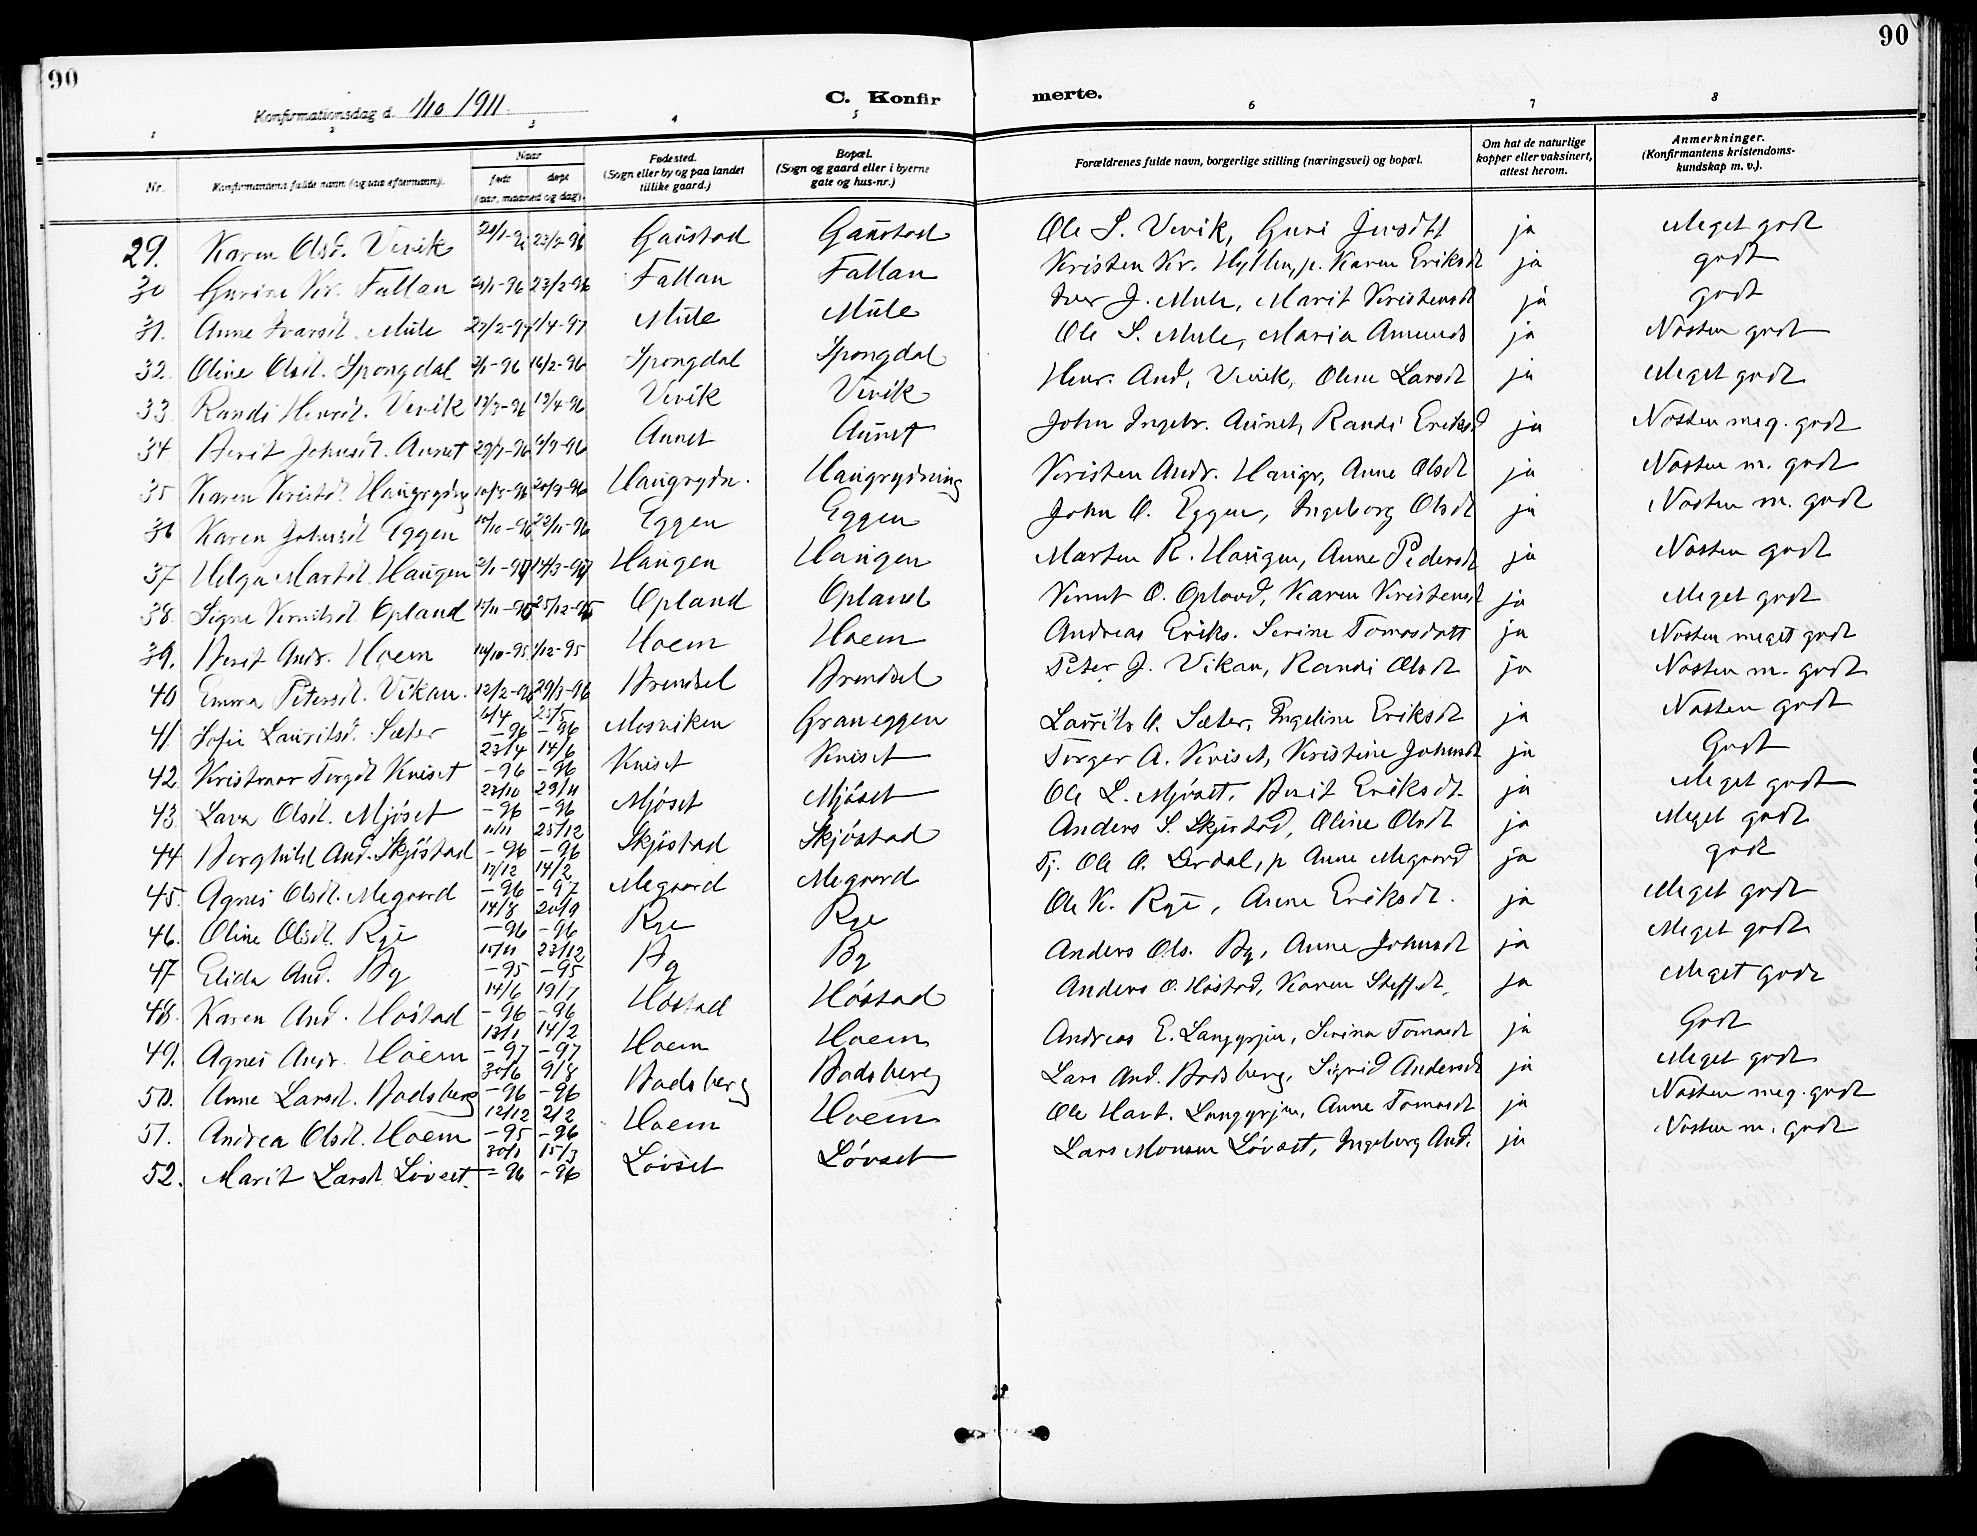 90
90
Konfirmationsdag d. 1/10 1911.
C. Konfir
merte.
1 2 3 4 5 6 7 8
Nr.
Konfirmantens fulde navn (og saa efternavn).
Naar
født
døpt
(aar, maaned og dag).
Fødested.
(Sogn eller by og paa landet
tillike gaard.)
Bopæl.
(Sogn og gaard eller i byerne
gate og hus-nr.)
Forældrenes fulde navn, borgerlige stilling (næringsvei) og bopæl.
Om hat de naturlige
kopper eller vaksinert,
attest herom.
Anmerkninger.
(Konfirmantens kristendoms-
kundskap m. v.).
29. Karen Olsd. Vevik 23/2-96 Gaustad Gaustad Ole S. Vevik, Guri ja Meget godt
30 Gurine Kr. Fallan 23/2-96 Fallan Fallan Kristen Kr. p. Karen Eriksdt ja godt
31. Anne Ivarsdt. Mule 1/4-97 Mule Mule Iver J. Mule, Marit Kristensdt ja godt
32. Oline Olsdt. Spongdal 16/2-96 Spongdal Spongdal Ole S. Mule, Maria Amunds ja Nesten godt
33 Randi Henrdt. Vevik 13/3-96 19/4-96 Vevik Vevik Henr. And. Vevik, Oline Larsdt ja Meget godt
34 Berit Johnsdt. Aunet 6/9-96 Aunet Aunet John Ingebr. Aunet, Randi Eriksd ja Nesten meg. godt
35 Karen Kristd. Haugrydng 20/9-96 Haugrydn. Haugrydning Kristen Andr. Haugr, Anne Olsdt ja Nesten m. godt
36 Karen Johnsdt Eggen 22/11-96 Eggen Eggen John O. Eggen, Ingeborg Olsdt ja Nesten m. godt
37 Helga Martdt. Haugen 2/1-97 14/3-97 Haugen Haugen Marten R. Haugen, Anne Pedersdt ja Nesten godt
38. Signe Knutsdt Opland 25/12-95 Opland Opland Knut O. Opland, Karen Kristensdt ja Meget godt
39. Berit Andr. Hoem 14/10-95 1/12-95 Hoem Hoem Andreas Eriks. Serine Tomasdatt ja Nesten meget godt
40 Emma Petersdt. Vikan. 12/2-96 29/3-96 Brendsel Brendsel Peter J. Vikan, Randi Olsdt ja Nesten m. godt
41. Sofie Lauritsd. Sæter 6/4 -96 25/5 -96 Mosviken Graneggen Laurits O. Sæter, Ingeline Eriksdt ja Nesten godt
42. Kristmar Torgdt Kviset 23/4 -96 14/6 -96 Kviset Kviset Torger A. Kviset, Kristine Johnsdt ja Godt
43. Lava Olsdt. Mjöset 23/10 -96 29/11 -96 Mjöset Mjöset Ole L. Mjöset, Berit Eriksdt. ja Meget godt
44 Borghild And. Skjöstad 11/11 -96 25/12 -96 Skjöstad Skjöstad Anders S. Skjöstad, Oline Olsdt ja Meget godt
45. Agnes Olsdt. Megaard 17/12 -96 14/2 -97 Megaard Megaard Tj. Ole O. Lerdal, p Anne Megaard ja godt
46. Oline Olsdt. Rye 14/8 -96 20/9 -96 Rye Rye Ole K. Rye, Anne Eriksdt. ja Meget godt
47 Elida And. By 15/11 -95 23/12 -95 By By Anders Ols. By, Anne Johnsdt ja Meget godt
48. Karen And. Höstad 14/6 -96 19/7 -96 Höstad Höstad Anders O. Höstad, Karen Steffdt. ja Meget godt
49. Agnes Andr. Hoem 13/1 -97 14/2 -97 Hoem Hoem Andreas E. Langgrjen, Serina Tomasdt ja Godt
50. Anne Larsdt. Bodsberg 30/6 -96 9/8 -96 Bodsberg Bodsberg Lars And. Bodsberg, Sigrid Andersdt ja Meget godt
51. Andrea Olsdt. Hoem 12/12 -95 2/2 -96 Hoem Hoem Ole Langgrjen, Anne Tomasdt ja Nesten meg. godt
52. Marit Larsdt Lövset. 30/1 -96 15/3 -96 Lövset Lövset Lars Monsen Lövset, Ingeborg And. ja Nesten m. godt